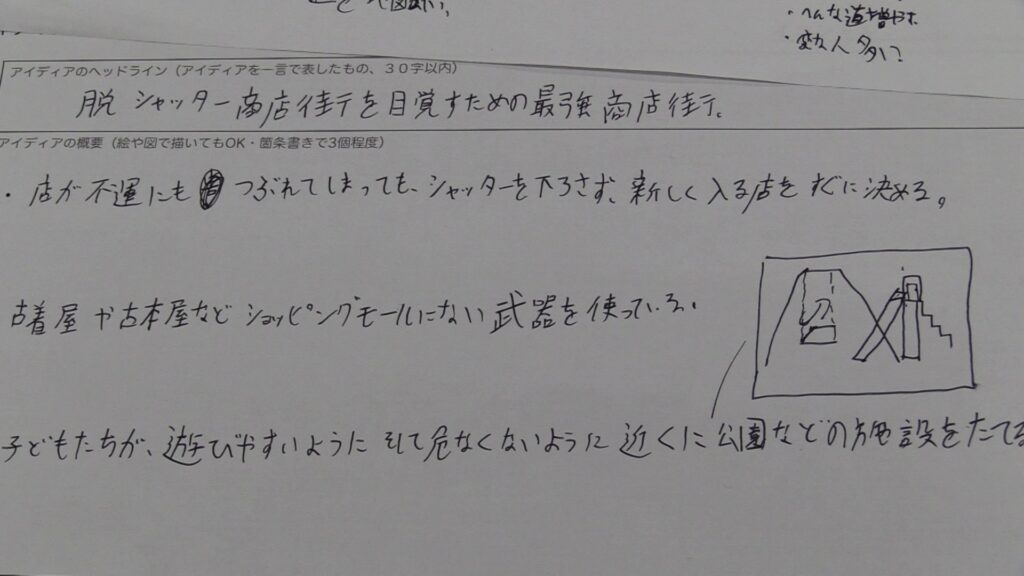 ・へんな道増やす
・変な人多い?
アイディアのヘッドライン（アイディアを一言で表したもの、３０字以内）
脱 シャッター商店街を目覚すための最強商店街。
アイディアの概要（絵や図で描いてもOK・箇条書きで3個程度）
・店が不運にも つぶれてしまっても、シャッターを下ろさず、新しく入る店をすぐに決める。
古着屋や古本屋などショッピングモールにない武器を使っている。
子どもたちが、遊びやすいように そして危なくないように 近くに公園などの施設をたてる